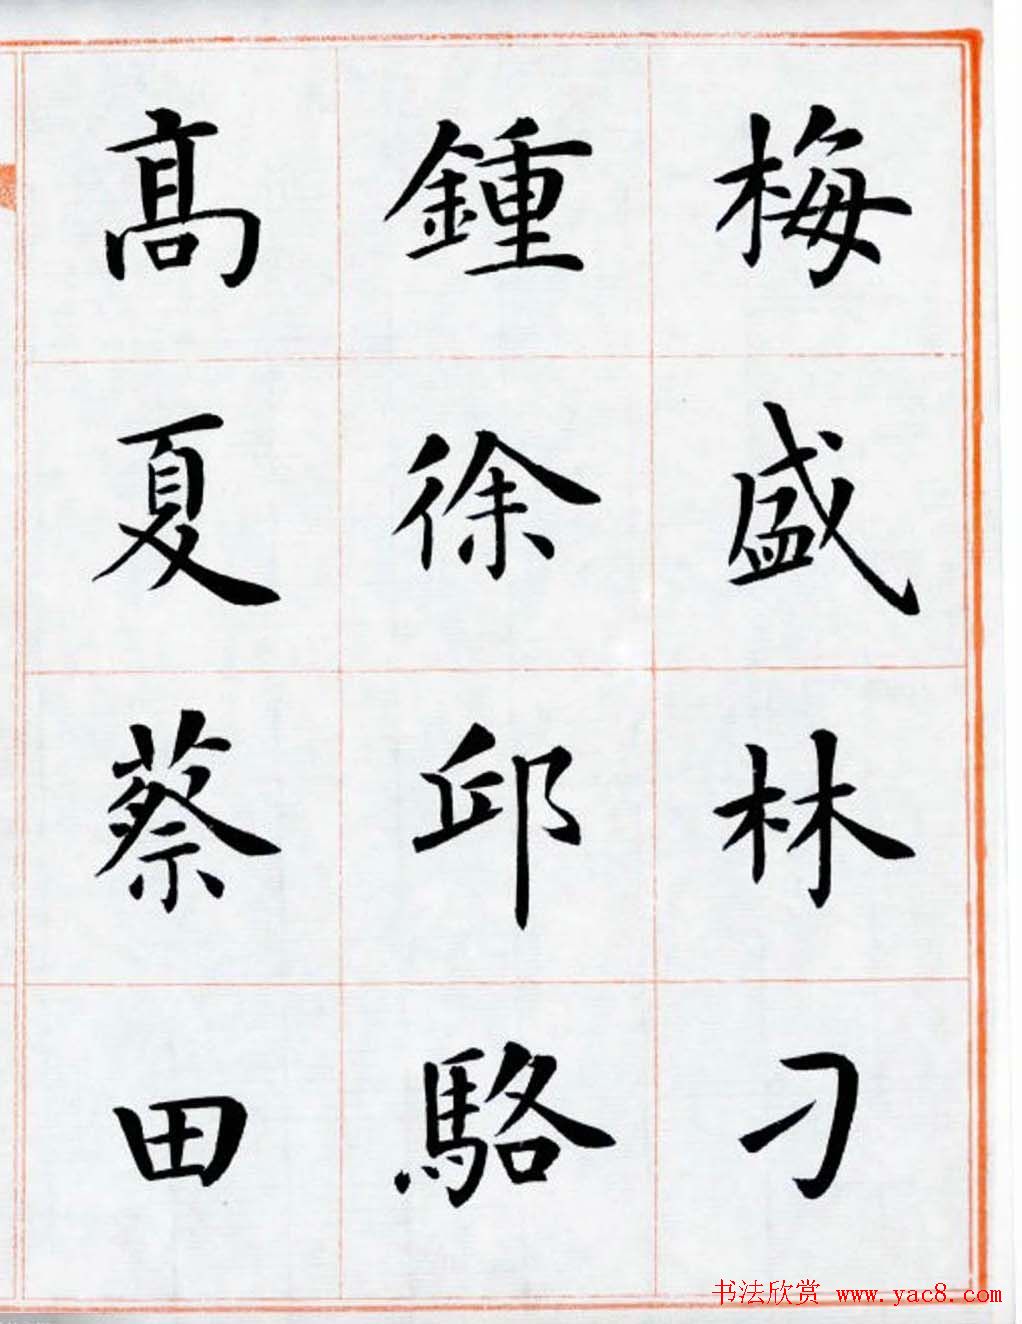 梅盛林刁
鍾徐邱駱
髙夏蔡田
书法欣赏 www.yac8.com